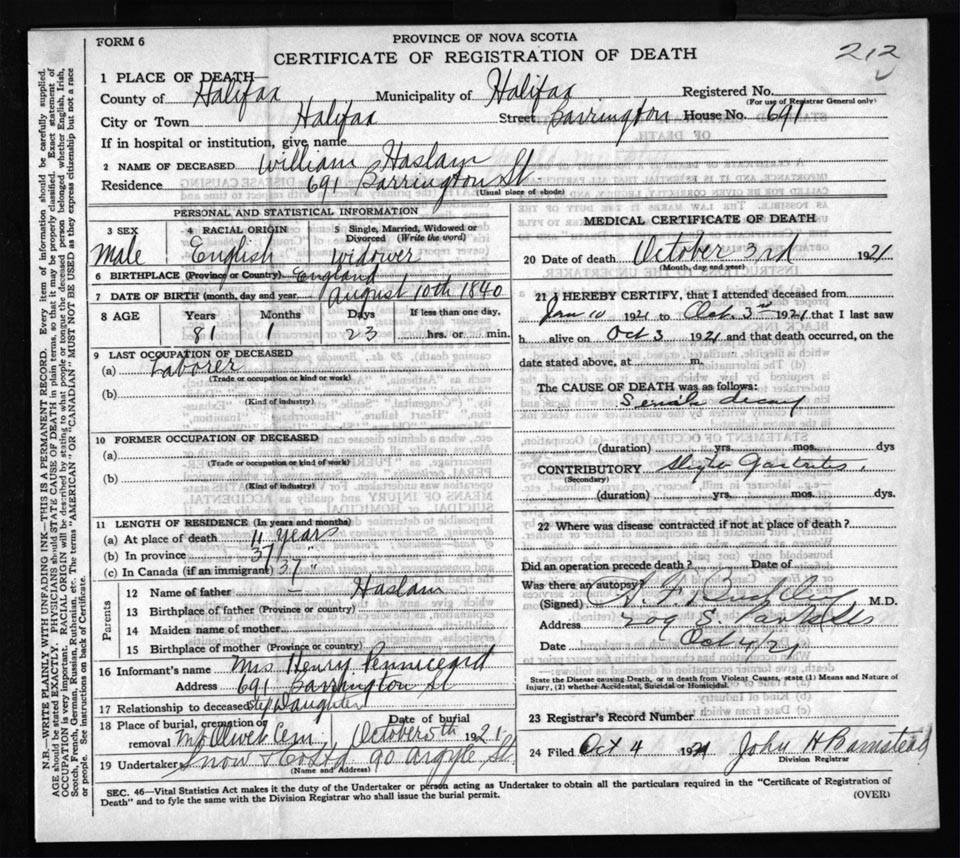 FORM 6
PROVINCE OF NOVA SCOTIA
CERTIFICATE OF REGISTRATION OF DEATH
212
1 PLACE OF DEATH—
County of Halifax Municipality of Halifax Registered No.
(For use of Registrar General only)
City or Town Halifax Street Barrington House No. 691
If in hospital or institution, give name
2 NAME OF DECEASED William Haslam
Residence 691 Barrington St
(Usual place of abode)
PERSONAL AND STATISTICAL INFORMATION
3 SEX 4 RACIAL ORIGIN Single, Married, Widowed or Divorced (Write the word)
Male English Widower
6 BIRTHPLACE (Province or Country) England
7 DATE OF BIRTH (month, day and year) August 10th 1840
8 AGE Years Months Days If less than one day,
81 1 23 hrs. or min.
9 LAST OCCUPATION OF DECEASED
(a) Laborer
(Trade or occupation or kind or work)
(b)
(Kind of industry)
10 FORMER OCCUPATION OF DECEASED
(a)
(Trade or occupation or kind of work)
(b)
(Kind of industry)
11 LENGTH OF RESIDENCE (In years and months)
(a) At place of death 11 years
(b) In province 37 "
(c) In Canada (if an immigrant) 37 "
Parents
12 Name of father — Haslam
13 Birthplace of father (Province or country)
14 Maiden name of mother
15 Birthplace of mother (Province or country)
16 Informant's name Mrs Henry Pennicegrd
Address 691 Barrington St
17 Relationship to deceased Step Daughter
18 Place of burial, cremation or removal Mt Olivet Cem. Date of burial October 5th 1921
19 Undertaker Snow & Co Ltd 90 Argyle St.
(Name and Address)
MEDICAL CERTIFICATE OF DEATH
20 Date of death October 3rd 1921
(Month, day and year)
21 I HEREBY CERTIFY, that I attended deceased from
Jan 10 1921 to Oct. 3rd 1921 that I last saw
h alive on Oct 3 1921 and that death occurred, on the
date stated above, at m.
The CAUSE OF DEATH was as follows:
Senile decay
(duration) yrs. mos. dys
CONTRIBUTORY Gastritis.
(Secondary)
(duration) yrs. mos. dys.
22 Where was disease contracted if not at place of death?
Did an operation precede death? Date of
Was there an autopsy?
(Signed) M.D.
Address 209 S. Park St
Date Oct 4/21
State the Disease causing Death, or in death from Violent Causes, state (1) Means and Nature of
Injury, (2) whether Accidental, Suicidal or Homicidal.
23 Registrar's Record Number
24 Filed Oct 4 1921 John H Barnstead
Division Registrar
SEC. 46—Vital Statistics Act makes it the duty of the Undertaker or person acting as Undertaker to obtain all the particulars required in the "Certificate of Registration of
Death" and to fyle the same with the Division Registrar who shall issue the burial permit.
(OVER)
N.B.—WRITE PLAINLY WITH UNFADING INK—THIS IS A PERMANENT RECORD. Every item of information should be carefully supplied.
AGE should be stated EXACTLY. PHYSICIANS should STATE CAUSE OF DEATH in plain terms, so that it may be properly classified. Exact statement of
OCCUPATION is very important. RACIAL ORIGIN will be described by stating to what people or tongue the deceased person belonged whether English, Irish,
Scotch, French, German, Russian, Ruthenian, etc. The terms "AMERICAN" OR "CANADIAN" MUST NOT BE USED as they express citizenship but not a race
or people. See instructions on back of Certificate.